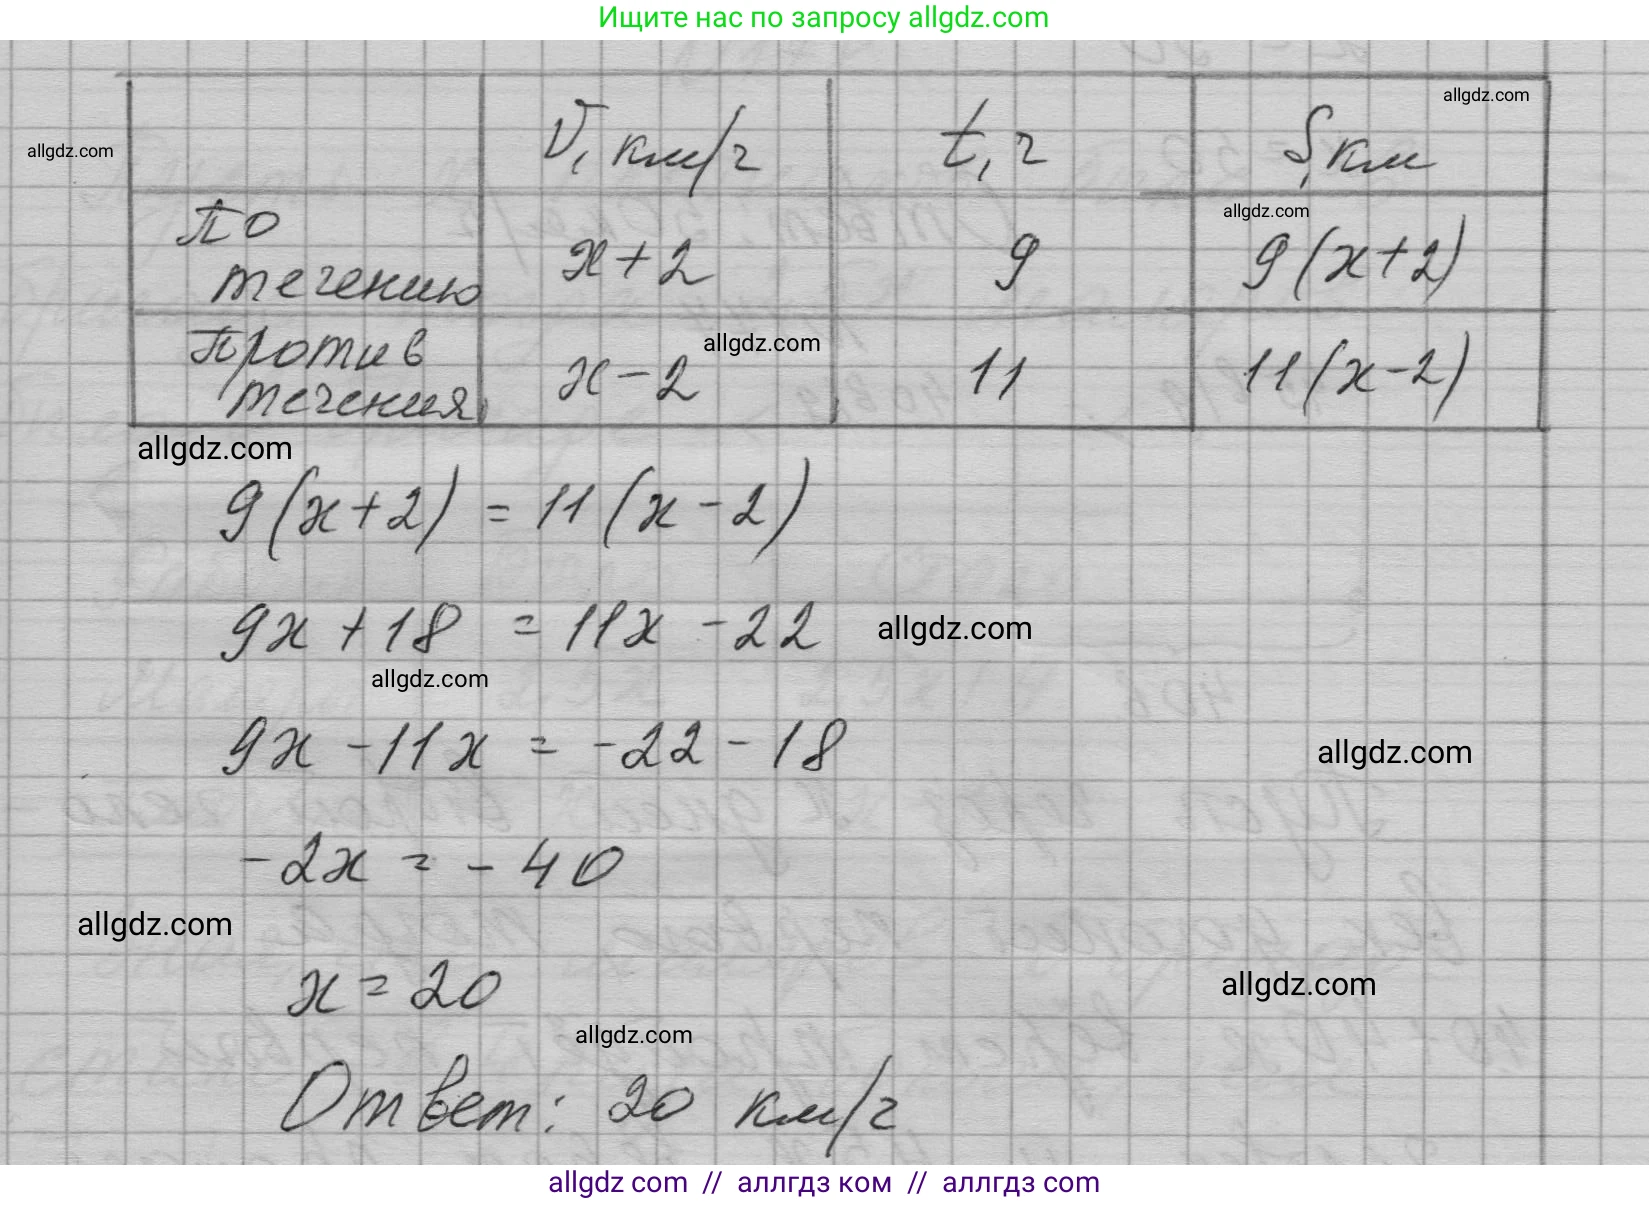 Ищите нас по запросу allgdz.com
V, км/ч t, ч S, км
allgdz.com
allgdz.com
по течению x+2 9 9(x+2)
allgdz.com
против течения x-2 11 11(x-2)
allgdz.com
allgdz.com
9(x+2) = 11(x-2)
9x+18 = 11x-22
allgdz.com
allgdz.com
9x-11x = -22-18
allgdz.com
-2x = -40
allgdz.com
x=20
allgdz.com
allgdz.com
Ответ: 20 км/ч
allgdz com // аллгдз ком // аллгдз com